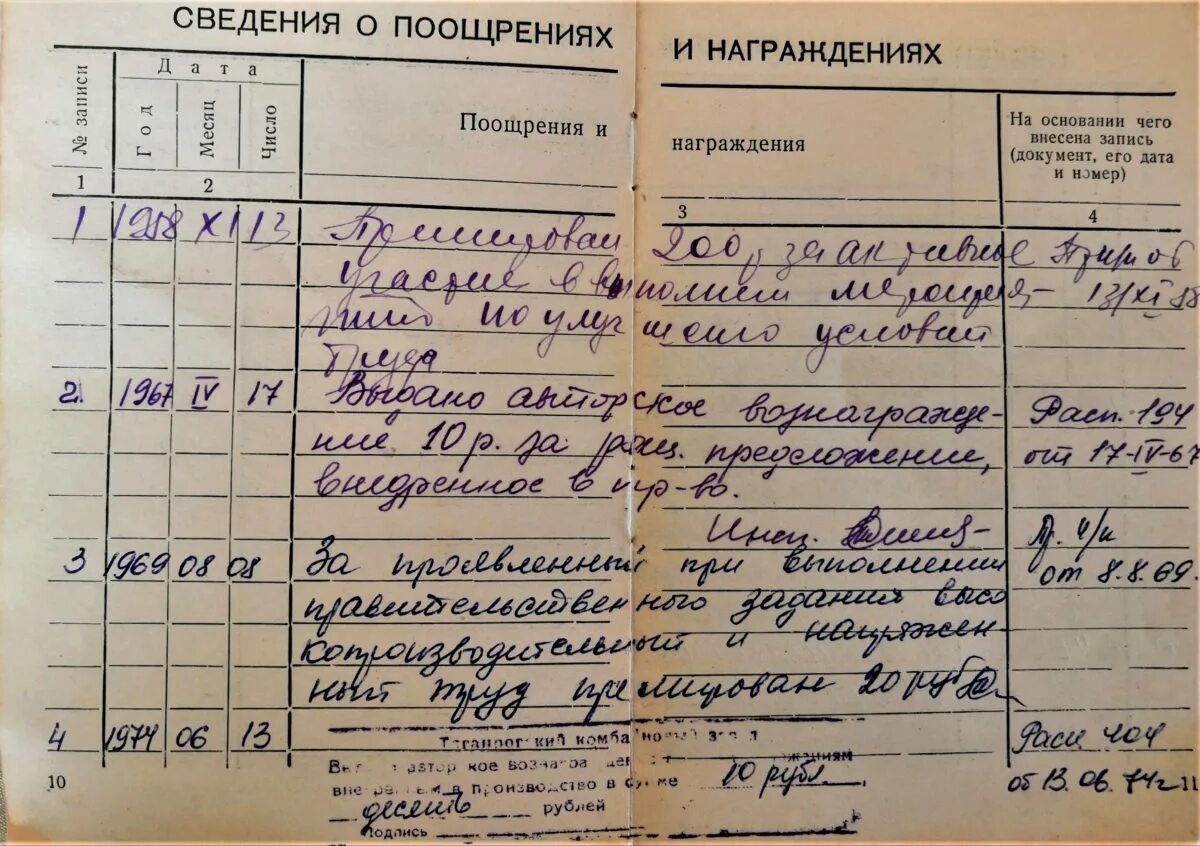 СВЕДЕНИЯ О ПООЩРЕНИЯХ И НАГРАЖДЕНИЯХ
№ записи
Дата
Год
Месяц
Число
Поощрения и награждения
На основании чего
внесена запись
(документ, его дата
и номер)
1
2
3
4
1 1958 XI 13 Премирован 200 р за активное
участие в выполнен мероприя-
по улучшению условий
труда
13/XI 58
2. 1967 IV 17 Выдано авторское вознагражде-
ние 10 р. за рац. предложение,
внедренное в пр-во.
Расп. 194
от 17-IV-67
Инсп.
3 1969 08 08 За проявленный при выполнении
правительственного задания высо
копроизводительный и напряжен
ный труд премирован 20 руб
Пр. ч/к
от 8.8.69.
4 1974 06 13 Таганрогский комбайновый завод
авторское вознаграждение
в производство в сумме 10 рубл
десять рублей
Подпись
Расп 404
от 13.06.74г
10
11